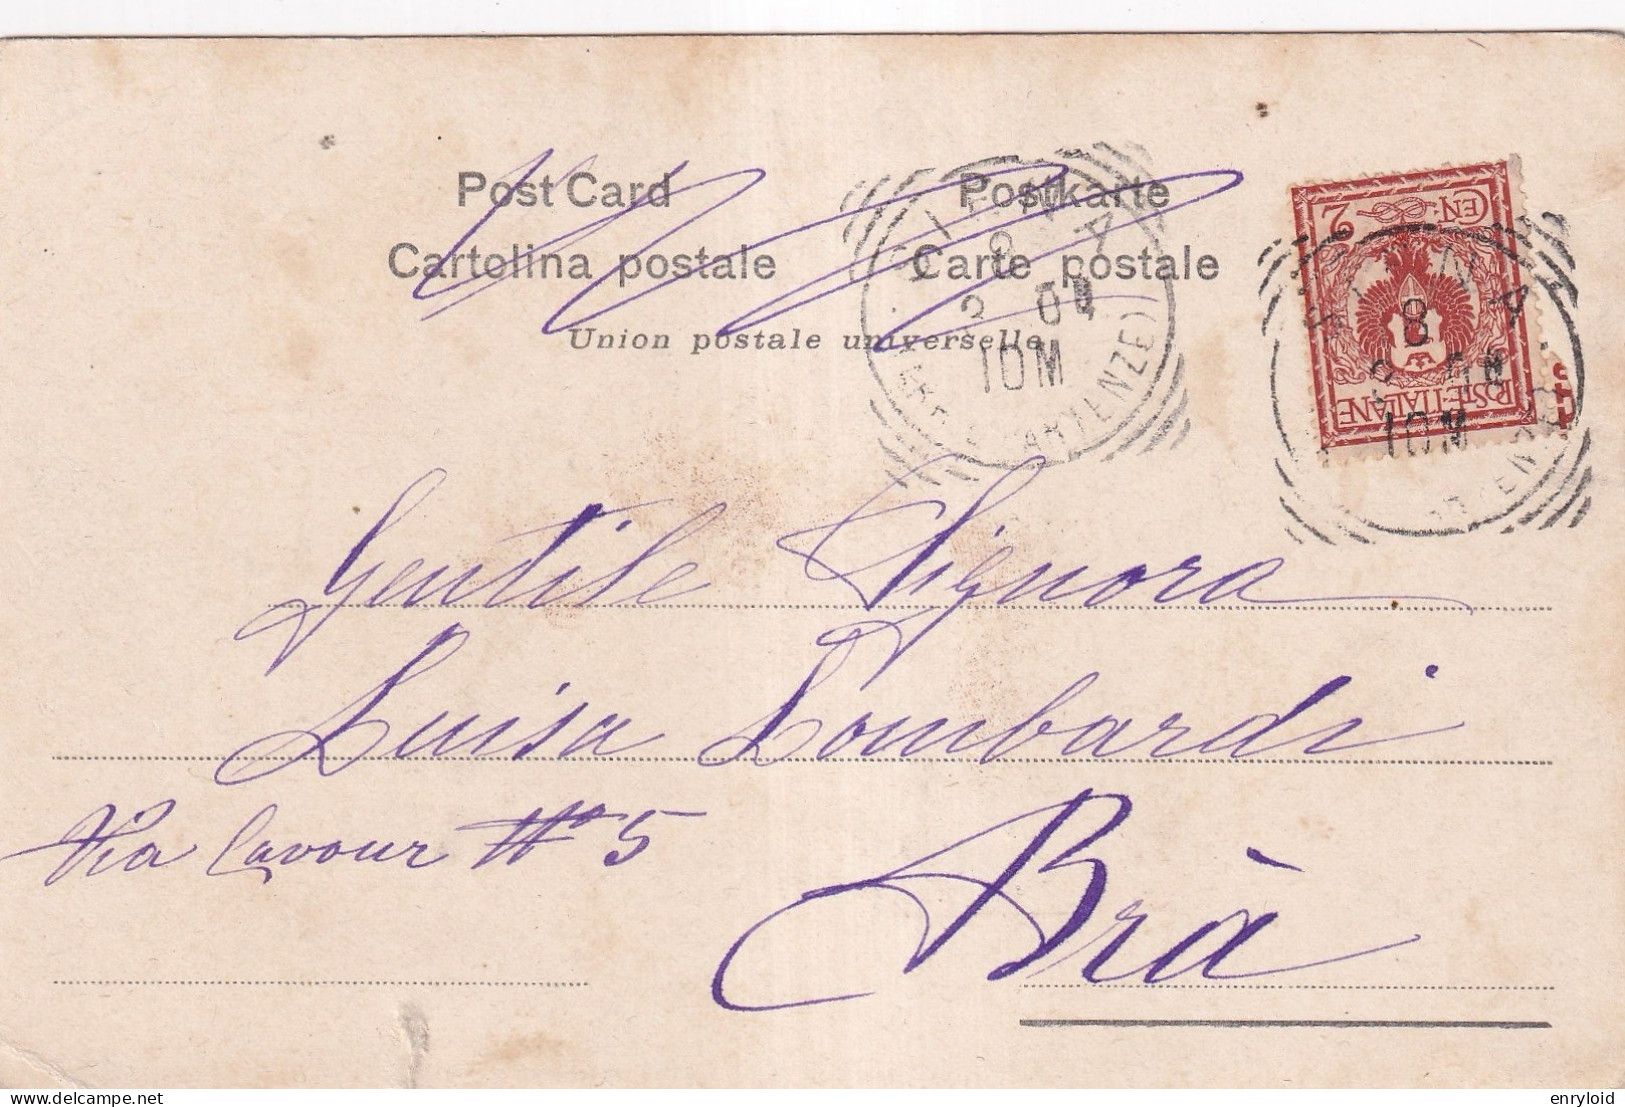 Post Card Postkarte
Cartolina postale Carte postale
Union postale universelle
SIENA
8
2 04
10M
(ARTENZE)
CEN. 2
POSTE ITALIANE
SIENA
8
10M
Gentile Signora
Luisa Lombardi
Via Cavour N° 5
Brà
delcampe.net
enryloid